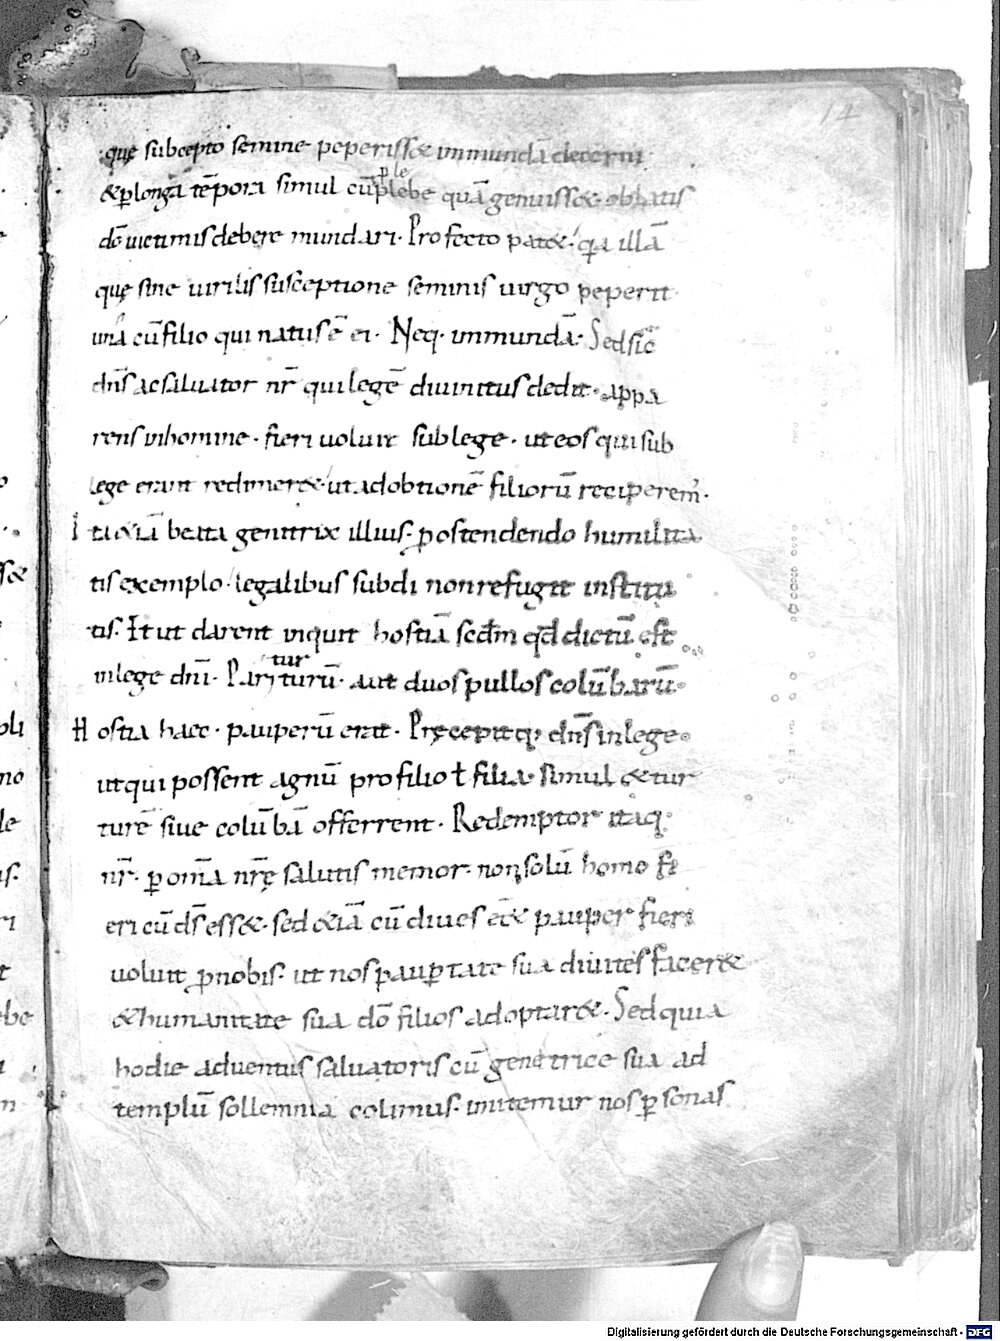 14
quę subcepto semine peperiss& inmundā decerni
&ꝑlongā tēpora simul cū ꝓle plebe quā genuiss& oblatis
dō uictimis debere mundari· Profecto pat&· q̇a illā
quę sine uirilis susceptione seminis uirgo peperit·
unā cū filio qui natus ē ei· Neq· inmundā· Sed sic̄
dn̄s ac saluator nr̄ qui legē diuinitus dedit· appa
rens inhomine· fieri uoluit sub lege· ut eos qui sub
lege erant redimer& ut adobtionē filiorū reciperem̄·
Ita &iā beata genitrix illius· ꝑostendendo humilita
tis exemplo· legalibus subdi non refugit institu
tis· Et ut darent inquit hostiā scd̄m qd̄ dictū est
inlege dn̄i· Par turturū· aut duos pullos colūbarū·
Hostia haec· pauperū erat· Pręcepitq· dn̄s inlege·
ut qui possent agnū pro filio ł filia· simul & tur
turē siue colūbā offerrent· Redemptor itaq·
nr̄· ꝑ om̄ia nr̄ę salutis memor· non solū homo fi
eri cū ds̄ ess&· sed &iā cū diues eē& pauper fieri
uoluit ꝓ nobis· ut nos pauꝑtate sua diuites facer&
& humanitate sua dō filios adoptar&· Sed quia
hodie aduentus saluatoris cū genetrice sua ad
templū sollemnia colimus· imitemur nos ꝑsonas
Digitalisierung gefördert durch die Deutsche Forschungsgemeinschaft - DFG